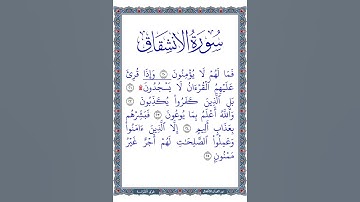 سُورَةُ الِانْشِقَاقِ
فَمَا لَهُمْ لَا يُؤْمِنُونَ ٢٠ وَإِذَا قُرِئَ
عَلَيْهِمُ الْقُرْءَانُ لَا يَسْجُدُونَ ۩ ٢١
بَلِ الَّذِينَ كَفَرُوا يُكَذِّبُونَ ٢٢
وَاللَّهُ أَعْلَمُ بِمَا يُوعُونَ ٢٣ فَبَشِّرْهُم
بِعَذَابٍ أَلِيمٍ ٢٤ إِلَّا الَّذِينَ ءَامَنُوا
وَعَمِلُوا الصَّٰلِحَٰتِ لَهُمْ أَجْرٌ غَيْرُ
مَمْنُونٍ ٢٥